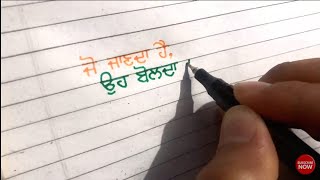 ਜੋ ਜਾਣਦਾ ਹੈ,
ਉਹ ਬੋਲਦਾ
SUBSCRIBE
NOW